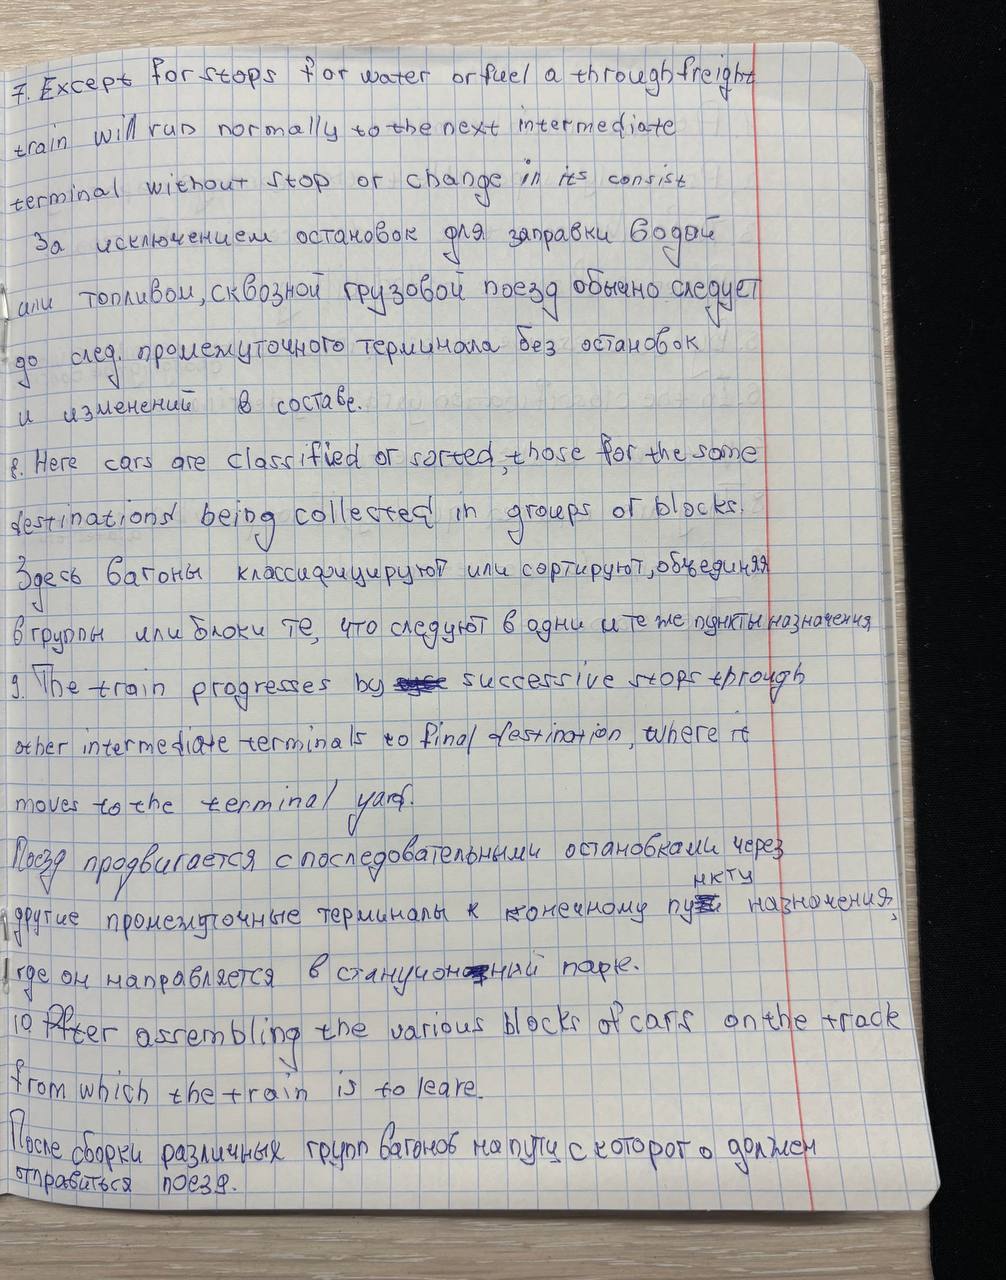 7. Except for stops for water or fuel a through freight
train will run normally to the next intermediate
terminal without stop or change in its consist
За исключением остановок для заправки водой
или топливом, сквозной грузовой поезд обычно следует
до след. промежуточного терминала без остановок
и изменений в составе.
8. Here cars are classified or sorted, those for the same
destinations being collected in groups or blocks.
Здесь вагоны классифицируют или сортируют, объединяя
в группы или блоки те, что следуют в одни и те же пункты назначения
9. The train progresses by successive stops through
other intermediate terminals to final destination, where it
moves to the terminal yard.
Поезд продвигается с последовательными остановками через
другие промежуточные терминалы к конечному пункту назначения,
где он направляется в станционный парк.
10 After assembling the various blocks of cars on the track
from which the train is to leave.
После сборки различных групп вагонов на пути с которого должен
отправиться поезд.